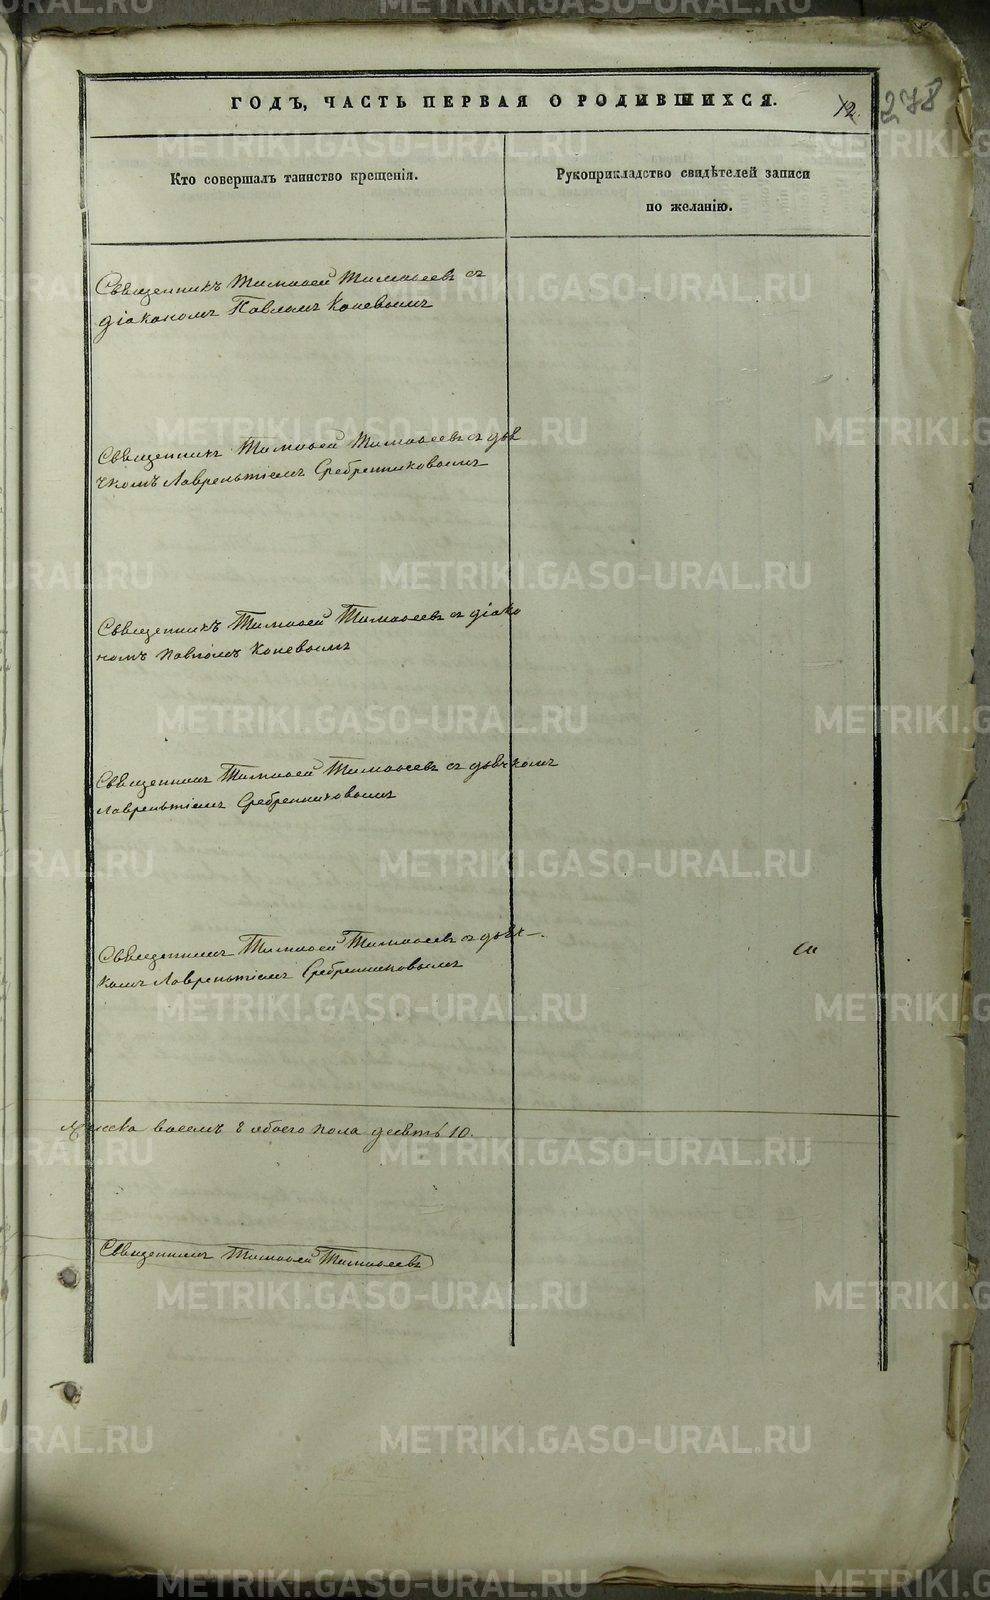 ГОДЪ, ЧАСТЬ ПЕРВАЯ О РОДИВШИХСЯ.
12.
278
Кто совершалъ таинство крещенія.
Рукоприкладство свидѣтелей записи
по желанію.
Священникъ Тимоѳей Тимоѳеевъ съ
діакономъ Павломъ Коневымъ
Священникъ Тимоѳей Тимоѳеевъ съ дья
чкомъ Лаврентіемъ Сребренниковымъ
Священникъ Тимоѳей Тимоѳеевъ съ діако
номъ Павломъ Коневымъ
Священникъ Тимоѳей Тимоѳеевъ съ дьячкомъ
Лаврентіемъ Сребренниковымъ
Священникъ Тимоѳей Тимоѳеевъ съ дьяч-
комъ Лаврентіемъ Сребренниковымъ
восемь 8 обоего пола десять 10.
Священникъ Тимоѳей Тимоѳеевъ
METRIKI.GASO-URAL.RU